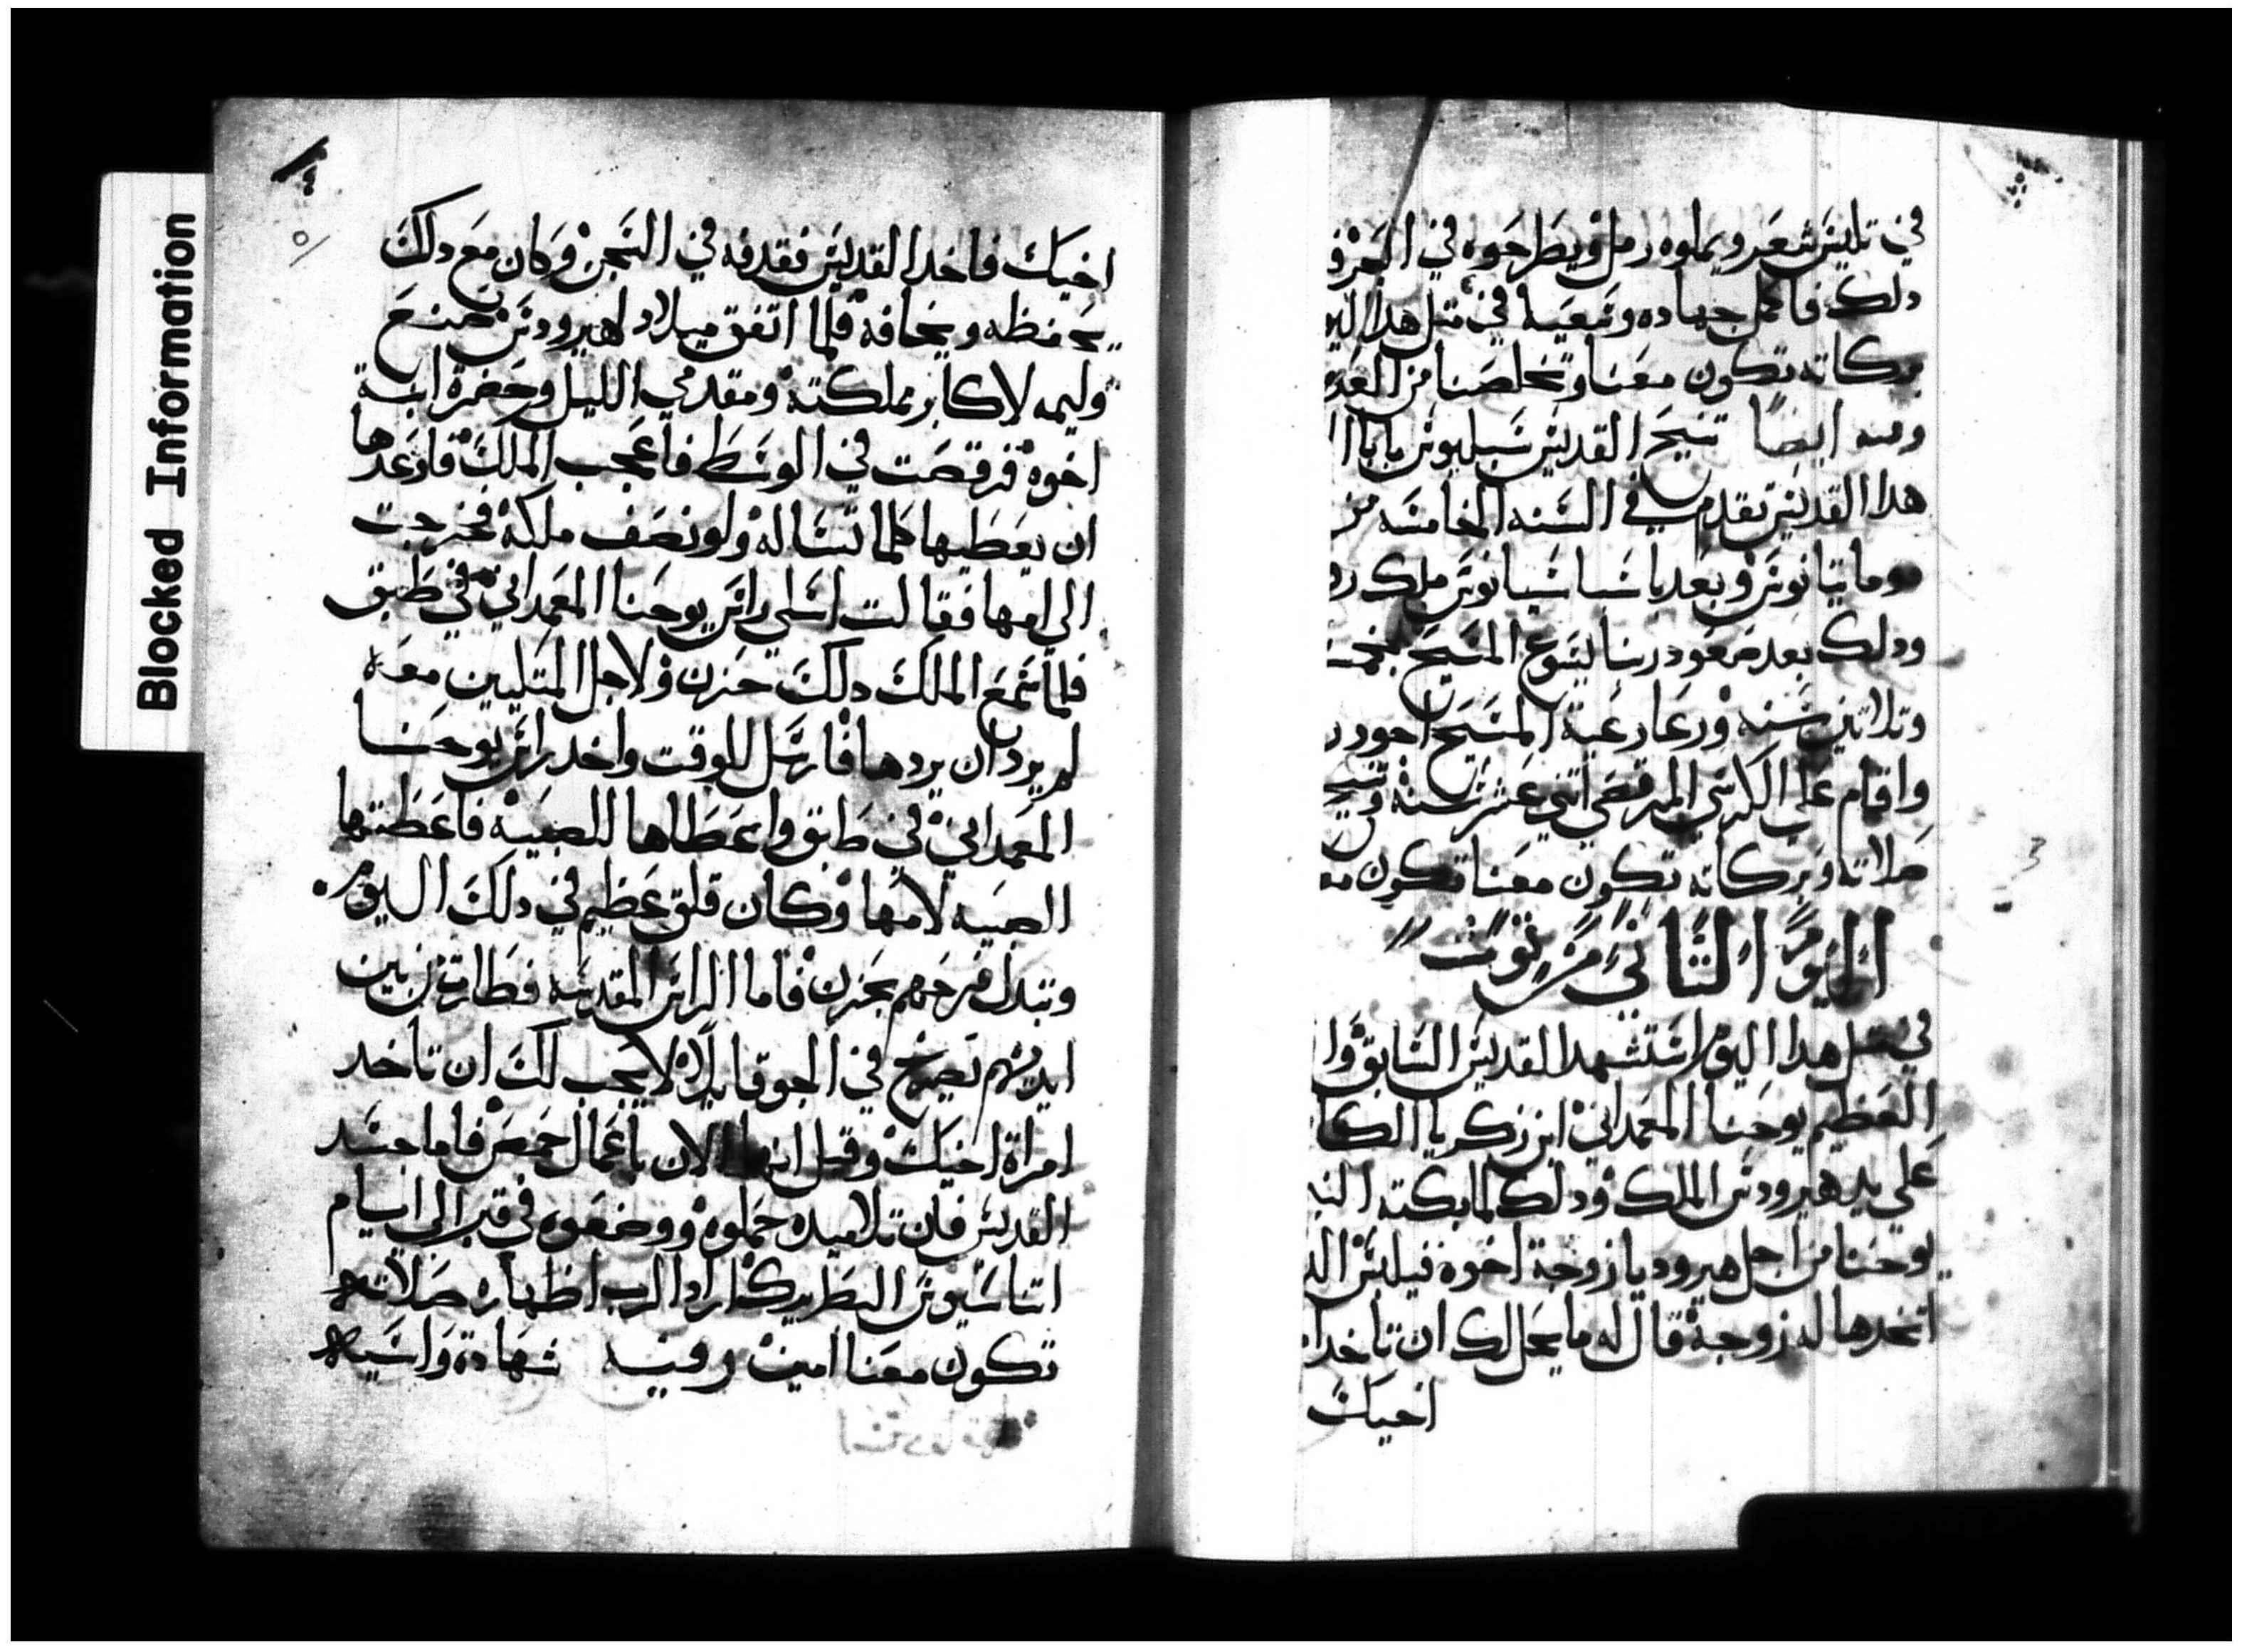 في تليس شعر ويملوه رمل ويطرحوه في البحر
دلك فاكمل جهاده وتعبه في متل هدا اليو
بركاته تكون معنا وتخلصنا من العدو
وفيه ايضا تنيح القديس بابا
هدا القديس تقدم في السنه الخامسه من
دوماتيانوس وبعد ملك
ودلك بعد صعود ربنا يسوع المسيح بخمسه
وتلاتين سنه ورعا رعية المسيح احود ر
واقام علي الكرسي المرقصي اتني عشر سنه وتنيح
صلاته وبركاته تكون معنا تكون
اليوم التاني من توت
في متل هدا اليوم استشهد القديس السابق وا
العظيم يوحنا المعمداني ابن زكريا الكا
علي يد هيرودس الملك ودلك لما بكته
يوحنا من اجل هيروديا زوجة اخوه فيلبس
اتخدها له زوجة قال له ما يحل لك ان تاخد
اخيك
٤
٥
اخيك فاخد القديس فقدفه في السجن وكان مع دلك
يحفظه ويخافه فلما اتفق ميلاد لهيرودس صنع
وليمه لاكابر مملكته ومقدمي الليل وحضرة ابنة
اخوه فرقصت في الوسط فاعجب الملك فاوعدها
ان يعطيها كلما تساله ولو نصف ملكه فخرجت
الي امها فقالت اسلي راس يوحنا المعمداني في طبق
فلما سمع الملك دلك حزن ولاجل المتليين معه
لم يرد ان يردها فارسل للوقت واخد راس يوحنا
المعمداني في طبق واعطاها للصبيه فاعطتها
الصبيه لامها وكان قلق عظيم في دلك اليوم
وتبدل فرحهم بحزن فاما الراس المقدسه فطارة من بين
ايديهم تصرخ في الجو قايلا لا يجب لك ان تاخد
امراة اخيك وقيل انها الان باعمال حمص فاما جسد
القديس فان تلاميده حملوه ووضعوه في قبر الي ايام
اتناسيوس البطريرك اراد الرب اظهاره صلاته
تكون معنا امين وفيه شهادة واسيه